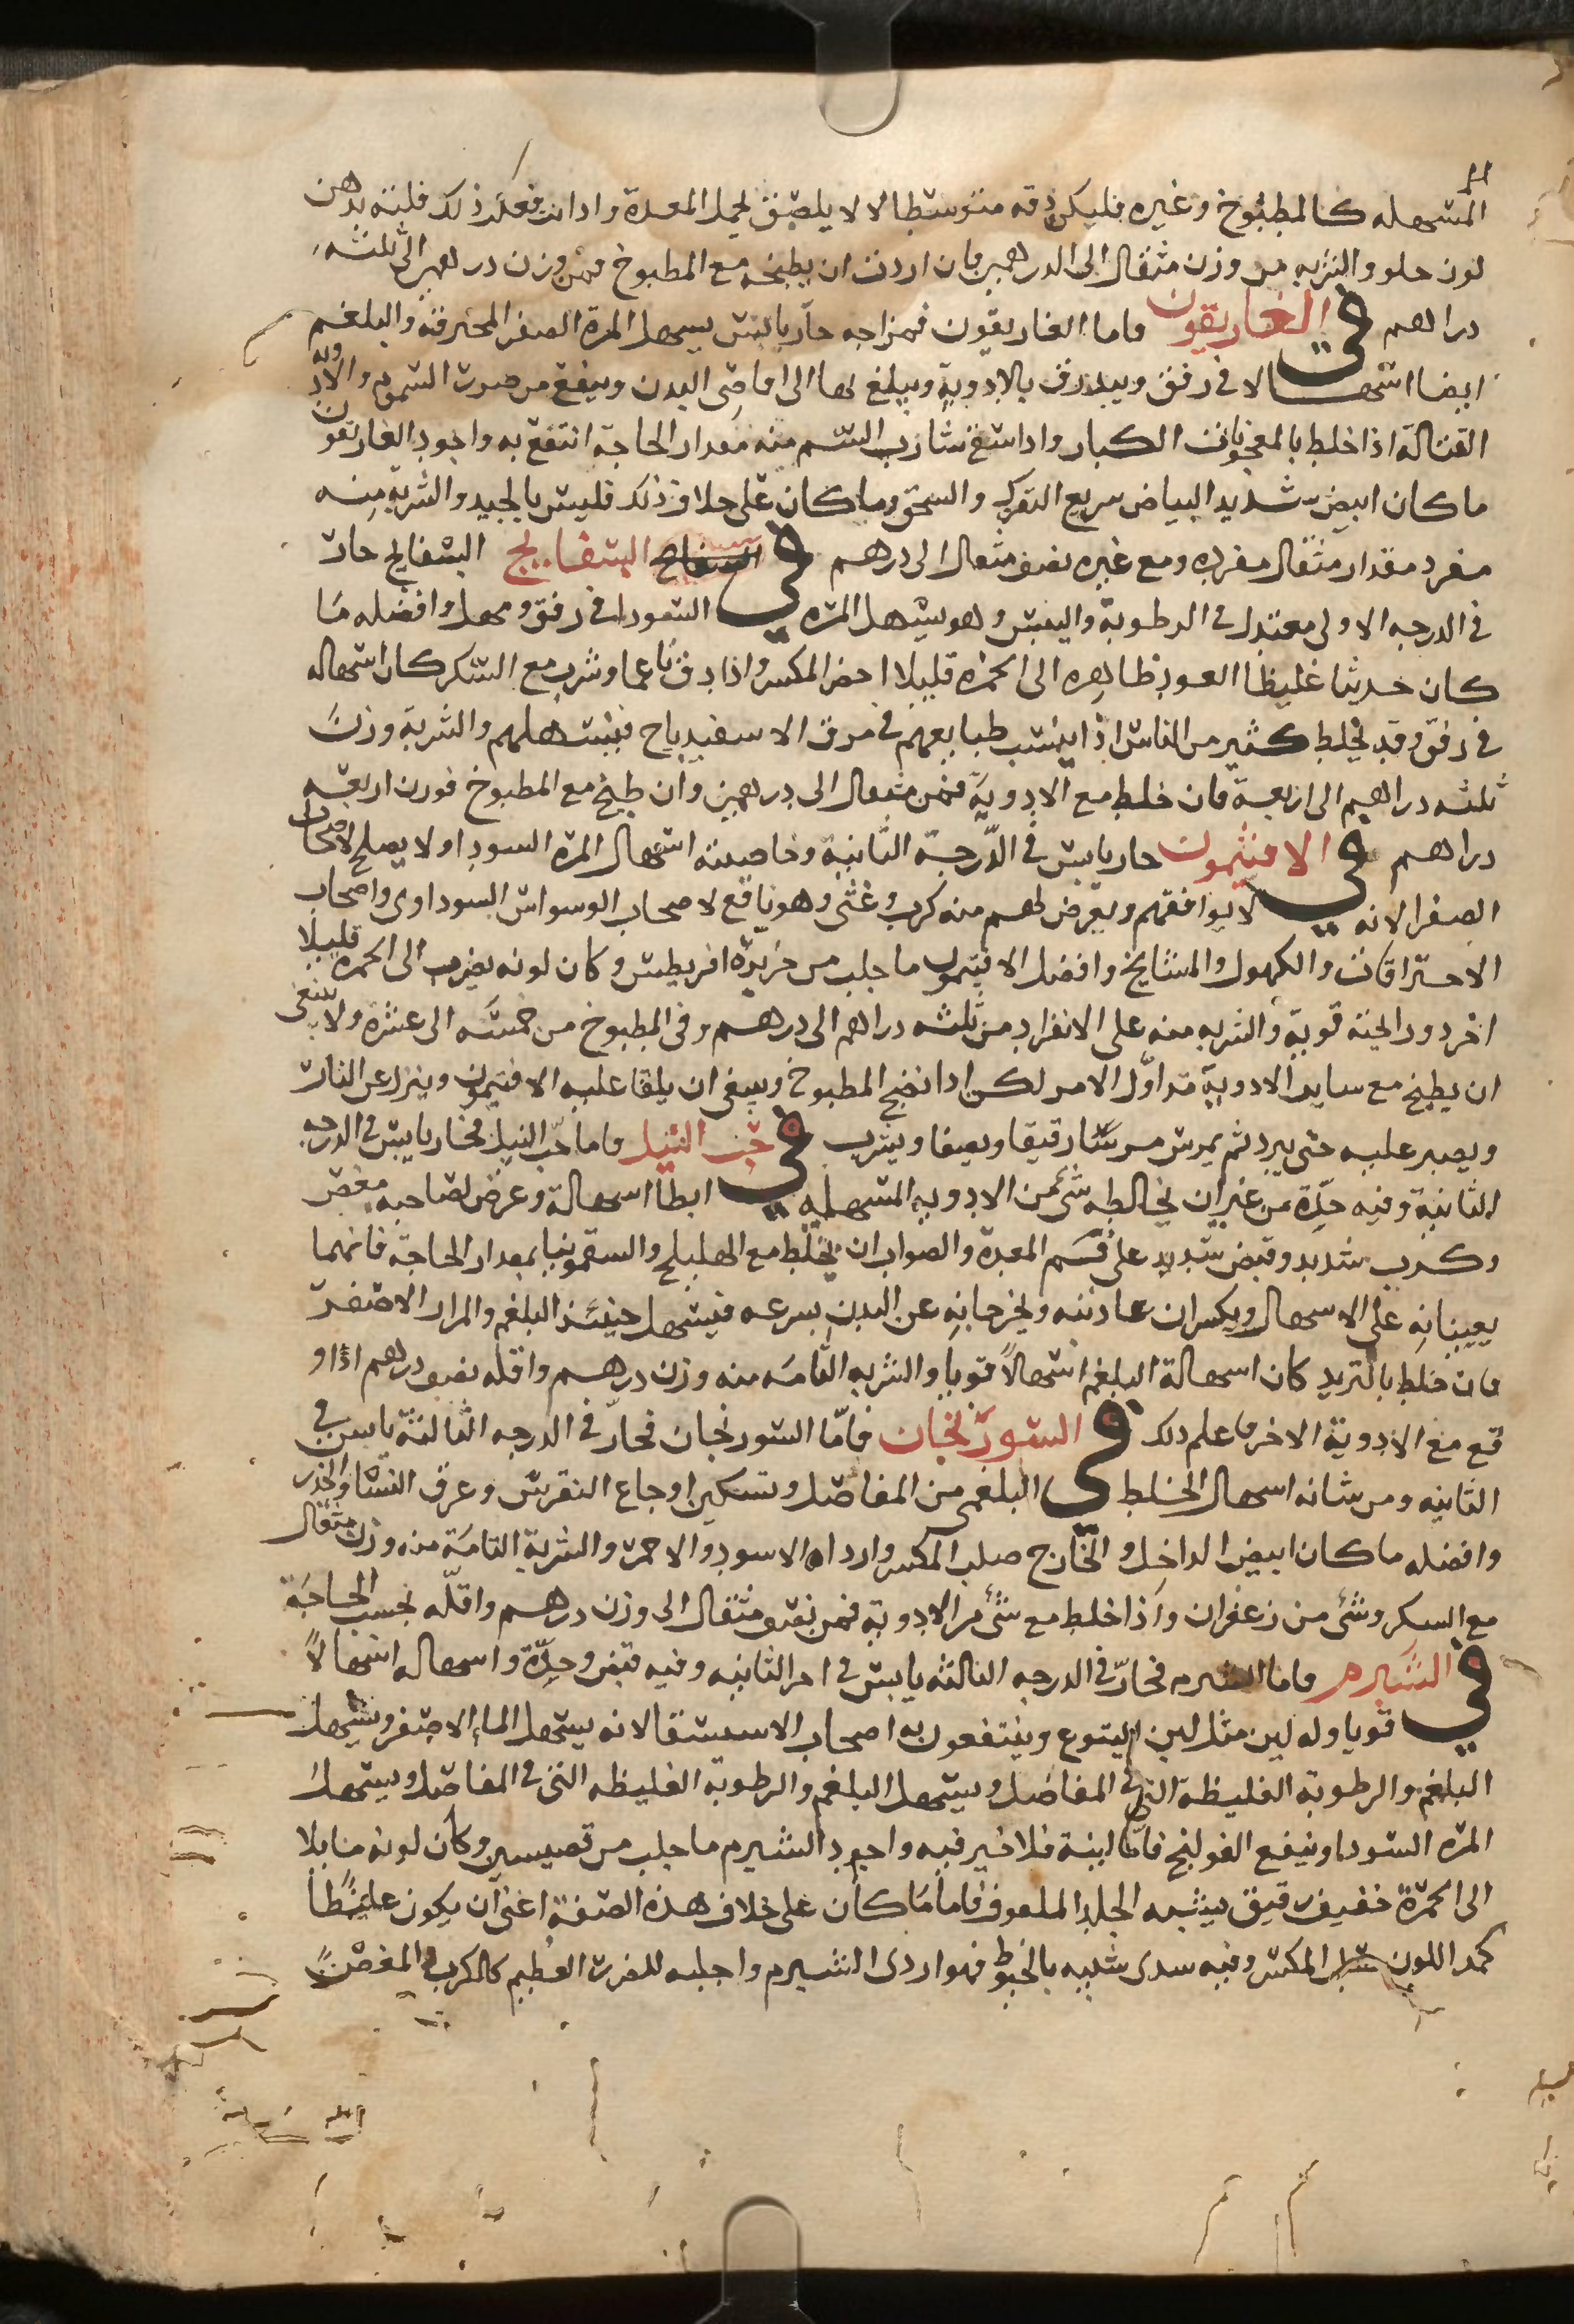 المسهله كالمطبوخ وغيره فليكن دقه متوسطا لا لا يلصق لحمل المعدة واذا انت فعلت ذلك فلته بدهن
لون حلو والشربه من وزن مثقال الى الدرهمين فان اردت ان يطبخه مع المطبوخ فمن وزن درهمين الى ثلثه
دراهم في الغاريقون واما الغاريقون فمزاجه حار يابس يسهل المرة الصفرا المحترقة والبلغم
ايضا اسهالا في رفق ويبذرق بالادوية ويبلغ بها الى اقاصى البدن وينفع من ضرر السموم والادويه
القتالة اذا خلط بالمعجونات الكبار واذا سقى شارب السم منه مقدار الحاجة انتفع به واجود الغاريقون
ما كان ابيض شديد البياض سريع التفرك والسحق وما كان على خلاف ذلك فليس بالجيد والشربة منه
مفرد مقدار مثقال مفرده ومع غيره نصف مثقال الى درهم في البسفايج البسفايج حار
في الدرجه الاولى معتدل في الرطوبة واليبس وهو يسهل المره السودا في رفق ومهل وافضله ما
كان حديثا غليظا العود ظاهره الى الحمره قليلا اخضر المكسر واذا دق ناعما وشرب مع السكر كان اسهاله
في رفق وقد يخلط كثير من الناس اذا يبست طبايعهم في مرق الاسفيدباج فيسهلهم والشربة وزن
ثلثه دراهم الى اربعة فان خلط مع الادوية فمن مثقال الى درهمين وان طبخ مع المطبوخ فوزن اربعه
دراهم في الافيثمون حار يابس في الدرجة الثانية وخاصيته اسهال المره السودا ولا يصلح لاصحاب
الصفرا لانه لا يوافقهم ويعرض لهم منه كرب وغثى وهو نافع لاصحاب الوسواس السوداوى واصحاب
الاحتراقات والكهول والمشايخ وافضل الافيتمون ما جلب من جزيرة افريطيش وكان لونه يضرب الى الحمرة قليلا
اخر ورايحته قوية والشربه منه على الانفراد من ثلثه دراهم الى درهم وفى المطبوخ من خمسه الى عشره ولا ينبغى
ان يطبخ مع ساير الادوية من اول الامر لكن اذا نضج المطبوخ وينبغى ان يلقا عليه الافتيمون وينزل عن النار
ويصبر عليه حتى يبرد ثم يمرس مرسا رقيقا ويصفا ويشرب في حب النيل واما حب النيل فحار يابس في الدرجه
الثانية وفيه حدة من غير ان يخالطه شى من الادويه المسهله ابطا اسهالة وعرض لصاحبه مغص
وكرب شديد وقبض شديد على فم المعدة والصواب ان يخلط مع الهليلج والسقمونيا بمقدار الحاجة فانهما
يعينانه على الاسهال ويكسران عاديته ويخرجانه عن البدن بسرعه فيسهل حينئذ البلغم والمرار الاصفر
فان خلط بالتربد كان اسهالة البلغم اسهالا قويا والشربه التامه منه وزن درهم واقله نصف درهم اذا و
قع مع الادوية الاخر فاعلم ذلك في السورنجان فاما السورنجان فحار في الدرجه الثالثة يابس في
الثانيه ومن شانه اسهال الخلط البلغمى من المفاصل وتسكين اوجاع النقرس وعرق النسا والخدر
وافضله ما كان ابيض الداخل والخارج صلب المكسر واردا ه الاسود والاحمر والشربة التامة منه وزن مثقال
مع السكر وشى من زعفران واذا خلط مع شى من الادوية فمن نصف مثقال الى وزن درهم واقله بحسب الحاجة
في الشبرم واما الشبرم فحار في الدرجه الثالثه يابس في اخر الثانيه وفيه قبض وحدة واسهاله اسهالا
قويا وله لبن مثل لبن اليتوع وينتفعون به اصحاب الاستسقا لانه يسهل الماء الاصفر ويسهل
البلغم والرطوبة الغليظة التى في المفاصل ويسهل البلغم والرطوبة الغليظه التى في المفاصل ويسهل
المره السودا وينفع القولنج فاما لبنة فلا خير فيه واجود الشبرم ما جلب من نصيبين وكان لونه مايلا
الى الحمرة خفيف رقيق يشبه الجلد الملفوف فاما ما كان على خلاف هذه الصفة اعنى ان يكون غليظا
كمد اللون المكسر وفيه سدى شبيه بالخيوط فهو اردى الشبرم واجلبه للضرر العظيم كالكرب والمغص